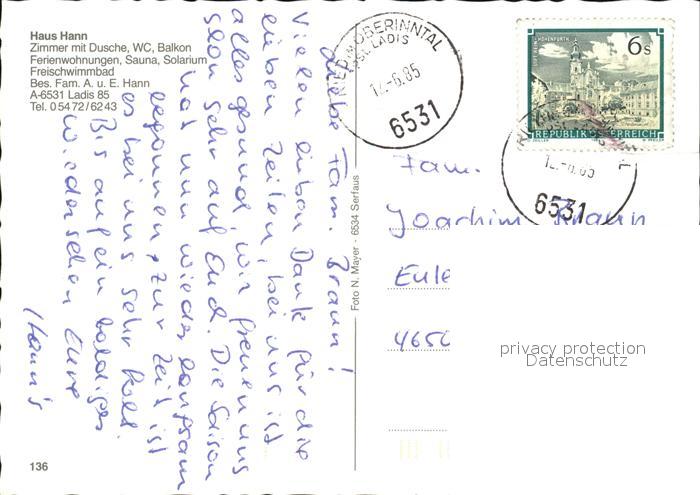 Haus Hann
Zimmer mit Dusche, WC, Balkon
Ferienwohnungen, Sauna, Solarium
Freischwimmbad
Bes. Fam. A. u. E. Hann
A-6531 Ladis 85
Tel. 05472/6243
Liebe Fam. Braun!
Vielen lieben Dank für die
lieben Zeilen, bei uns ist
alles gesund, wir freuen uns
schon sehr auf Euch. Die Saison
hat nun wieder langsam
begonnen, zur Zeit ist
es bei uns sehr kalt.
Bis auf ein baldiges
Wiedersehen Eure
Hann's
136
Foto N. Mayer - 6534 Serfaus
RIED IM OBERINNTAL
LADIS
12.-6.85
6531
STIFT REIN-HOHENFURTH
6 S
REPUBLIK ÖSTERREICH
12.-6.85
6531
Fam.
Joachim Braun
Eule
4650
privacy protection
Datenschutz